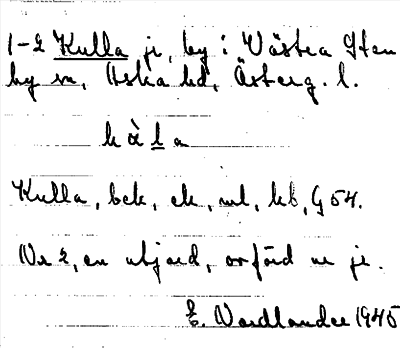 1-2 Kulla je, by i Västra Sten
by sn, Aska hd, Österg. l.
kàla
Kulla, bek, ek, ml, hb, G 54.
Nr 2, en utjord, avförd ur je.
E. Nordlander 1945